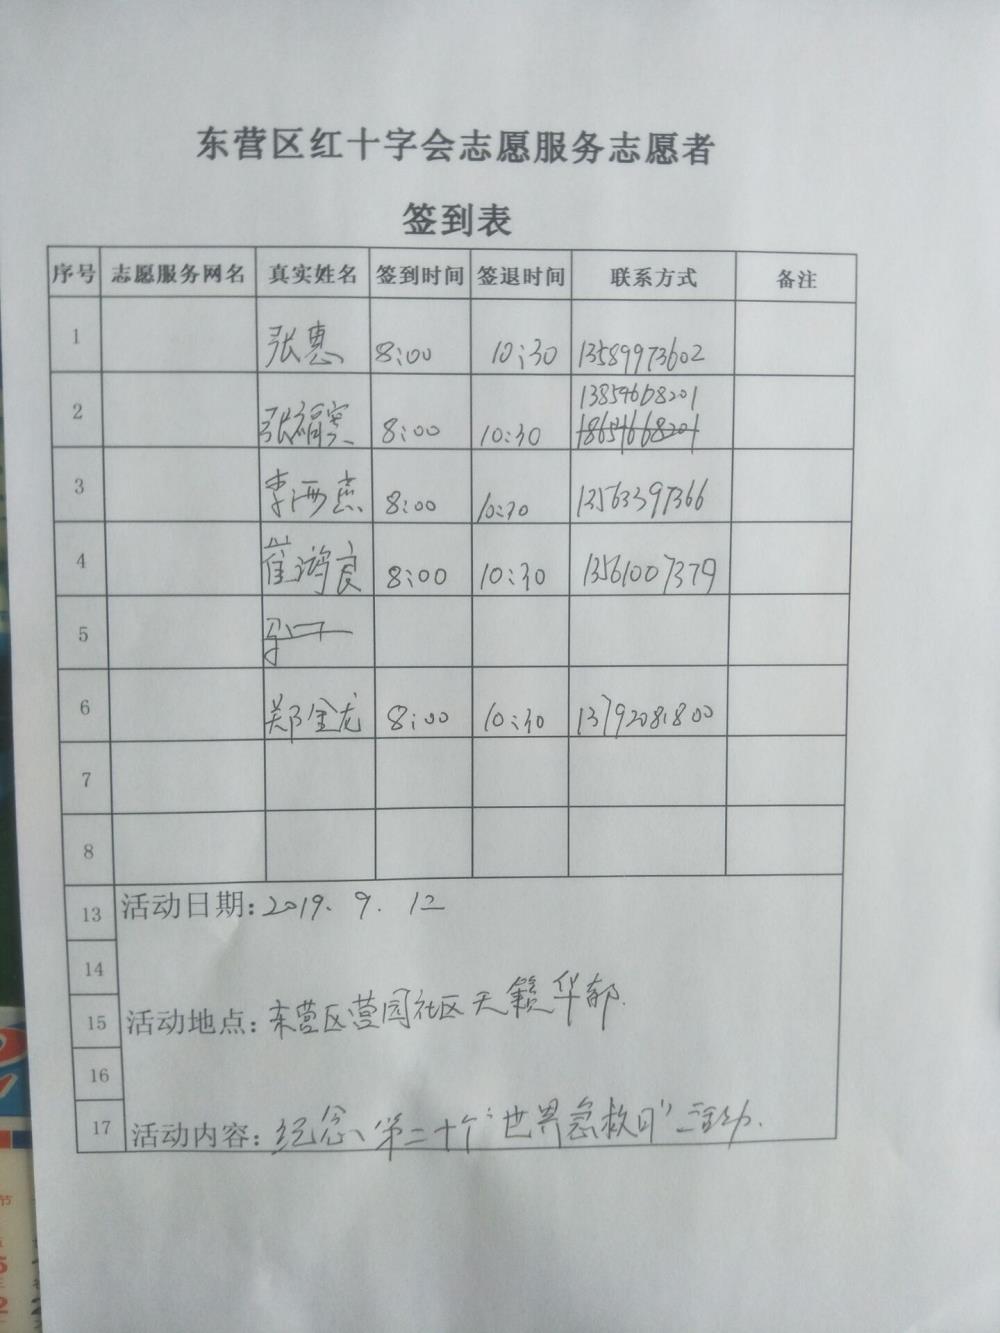 东营区红十字会志愿服务志愿者
签到表
序号 志愿服务网名 真实姓名 签到时间 签退时间 联系方式 备注
1 张惠 8:00 10:30 13589973602
13854668201
2 张福寰 8:00 10:30 18654668201
3 李西杰 8:00 10:30 13563397366
4 崔鸿良 8:00 10:30 13561007379
5
6 郑金龙 8:00 10:30 13792081800
7
8
13 活动日期: 2019. 9. 12
14
15 活动地点: 东营区营园社区天籁华都.
16
17 活动内容: 纪念、第二十个“世界急救日”活动.